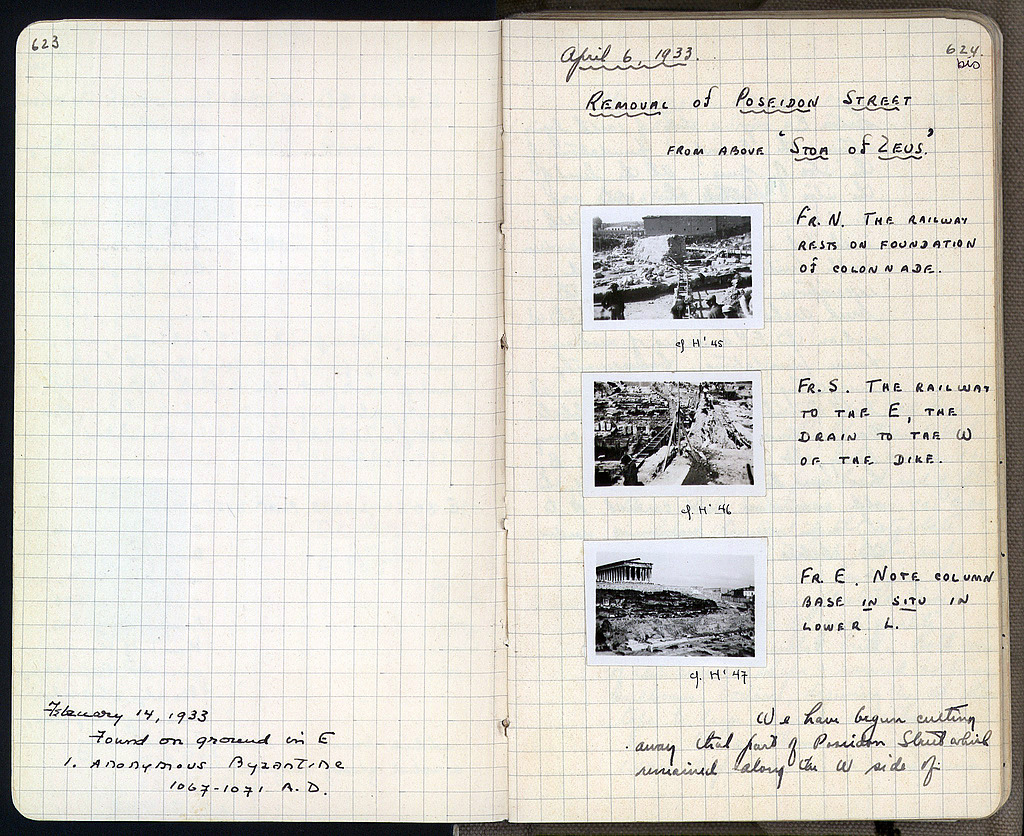 623
February 14, 1933
Found on ground in E
1. Anonymous Byzantine
1067-1071 A.D.
624.
bis
April 6, 1933.
REMOVAL of POSEIDON STREET
FROM ABOVE 'STOA of ZEUS.'
FR. N. THE RAILWAY
RESTS ON FOUNDATION
of COLONNADE.
cf H' 45
FR. S. THE RAILWAY
TO THE E, THE
DRAIN TO THE W
OF THE DIKE.
cf. H' 46
FR. E. NOTE COLUMN
BASE IN SITU IN
LOWER L.
cf. H' 47
We have begun cutting
away that part of Poseidon Street which
remained along the W side of